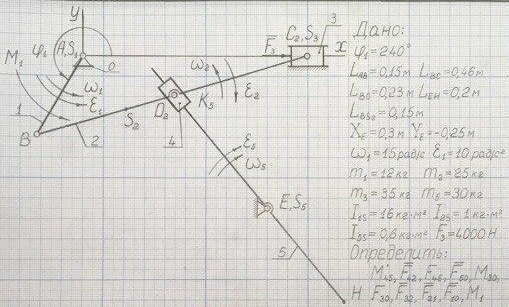 y
M₁ φ₁ A,S₁
0
x
F̅₃ C₂,S₃ 3
ω₁
ε₁
ω₂
ε₂
1
B
2
S₂
D₂ K₅
4
ε₅
ω₅
E,S₅
5
H
Дано:
φ₁=240°
L_AB=0,15м L_BC=0,46м
L_BD=0,23м L_EH=0,2м
L_BS₂=0,15м
X_E=0,3м Y_E=-0,25м
ω₁=15рад/с ε₁=10рад/с²
m₁=12кг m₂=25кг
m₃=35кг m₅=30кг
I₁S=16кг·м² I₂S=1кг·м²
I₅S=0,6кг·м² F̅₃=4000Н
Определить:
M₄₅, F̅₄₂, F̅₄₅, F̅₅₀, M₃₀,
F̅₃₀, F̅₃₂, F̅₂₁, F̅₁₀, M₁